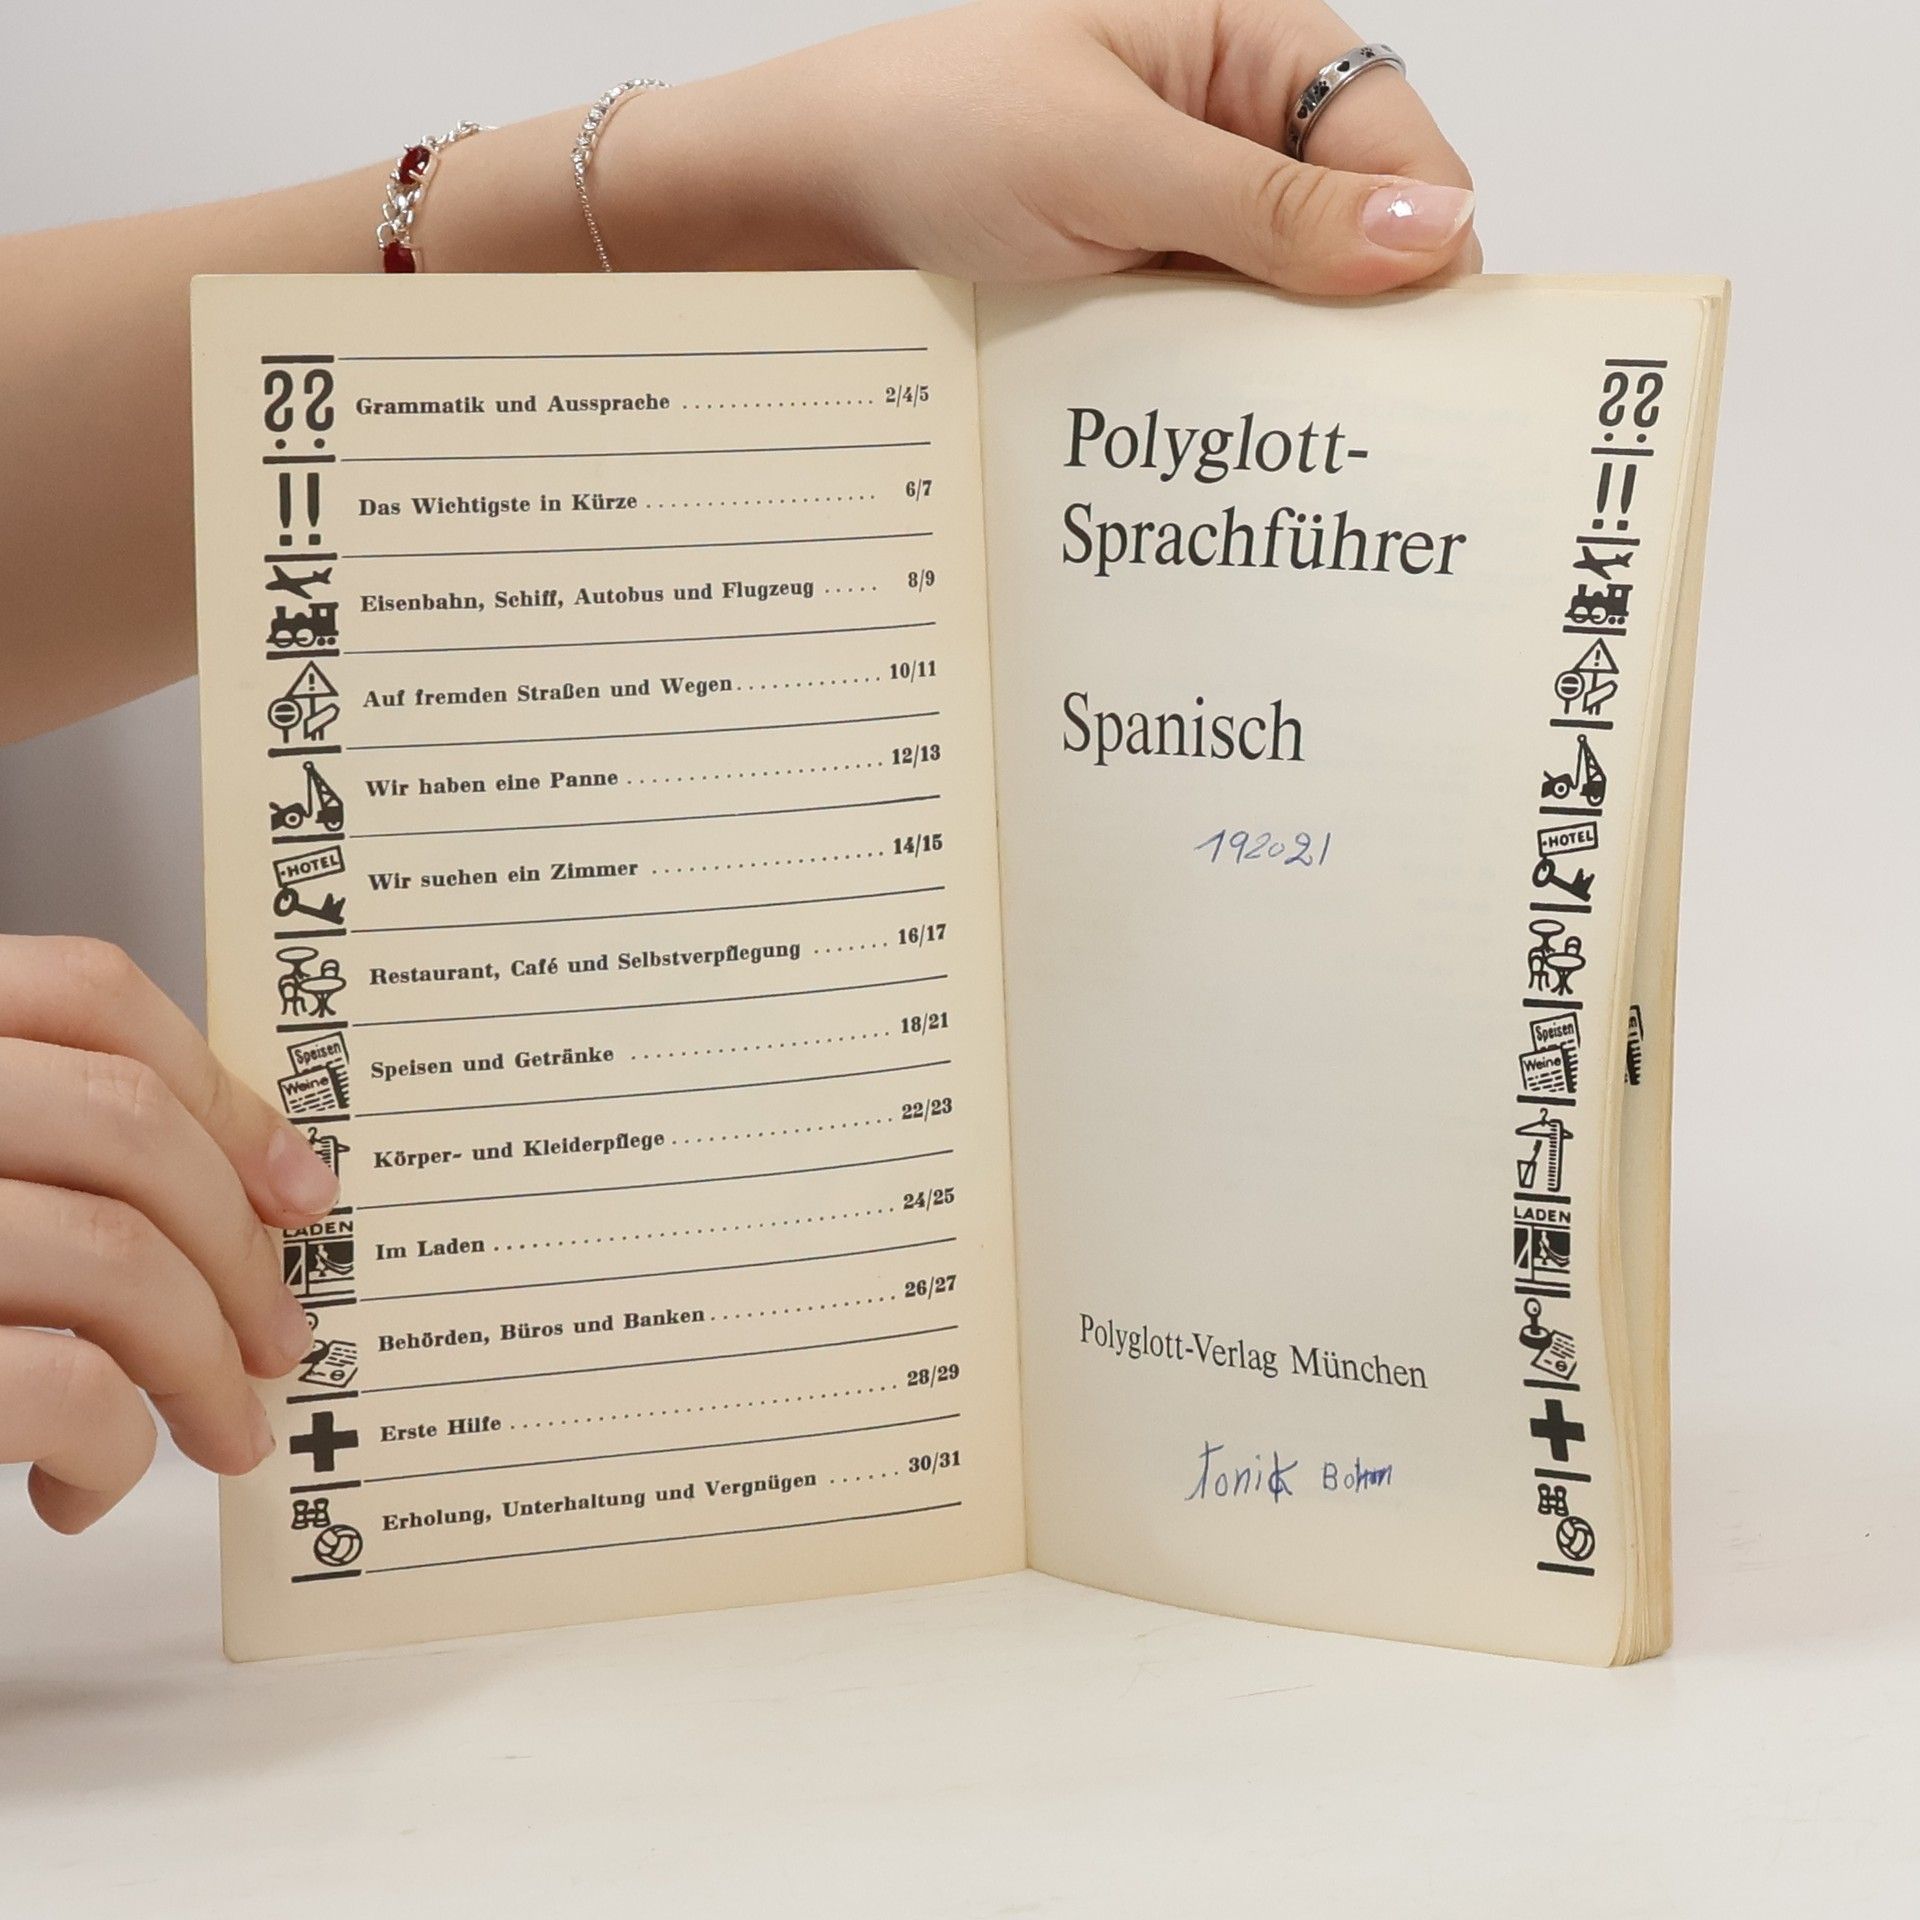 Grammatik und Aussprache ................ 2/4/5
Das Wichtigste in Kürze .................... 6/7
Eisenbahn, Schiff, Autobus und Flugzeug ..... 8/9
Auf fremden Straßen und Wegen ............. 10/11
Wir haben eine Panne ...................... 12/13
HOTEL
Wir suchen ein Zimmer .................... 14/15
Restaurant, Café und Selbstverpflegung ....... 16/17
Speisen
Weine
Speisen und Getränke ...................... 18/21
Körper- und Kleiderpflege ................... 22/23
LADEN
Im Laden .................................. 24/25
Behörden, Büros und Banken ................ 26/27
Erste Hilfe ................................. 28/29
Erholung, Unterhaltung und Vergnügen ...... 30/31
Polyglott-
Sprachführer
Spanisch
192021
Polyglott-Verlag München
Tonick
HOTEL
Speisen
Weine
LADEN